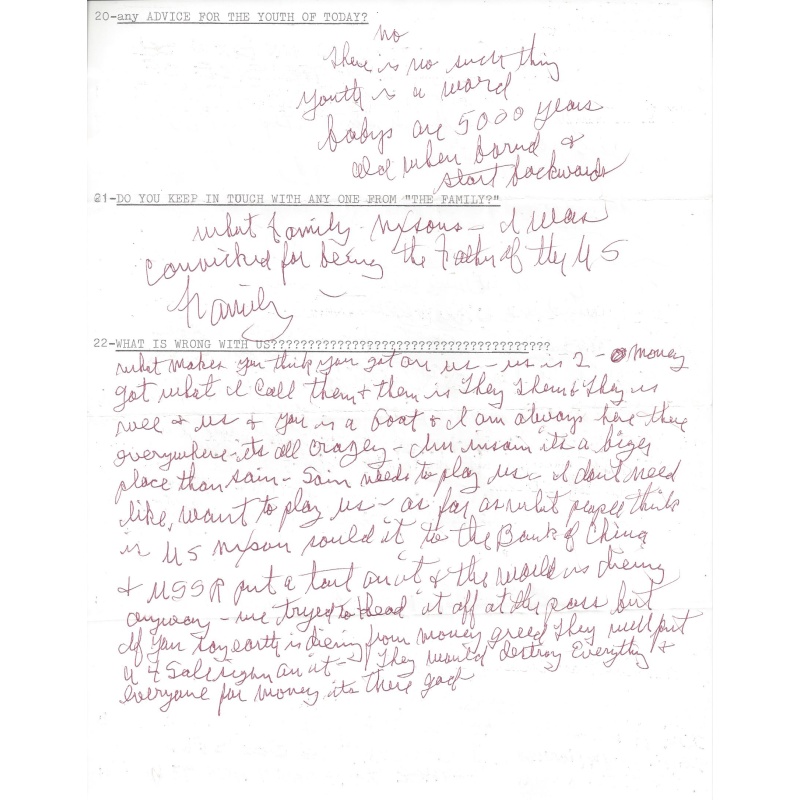 20-any ADVICE FOR THE YOUTH OF TODAY?
no
there is no such thing
youth is a word
babys are 5000 years
old when bornd &
start backwards
21-DO YOU KEEP IN TOUCH WITH ANY ONE FROM "THE FAMILY?"
what family nixsons - I was
convicked for being the Father of the US
Family
22-WHAT IS WRONG WITH US???????????????????????????????????????
what makes you think you got an us - us is 2 - money
got what I call them & them is they them & they is
well & us & you is a Goat & I am always here there
everywhere - its all crazey - Im insain its a biger
place than sain - Sain needs to play us - I dont need
like, want to play us - as far as what people think
is US nixson sould it to the Bank of China
& USSR put a on it & the world is dieing
anyway - we tryed to head it off at the pass but
if you say earth is dieing from money greed they will put
a 4 Sale sighn on it - They would destroy Everythg &
everyone for money its there god